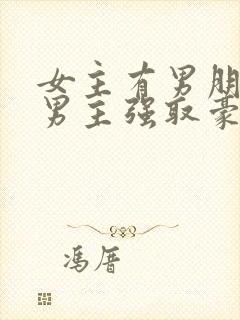 女主有男朋
男主强取豪
冯厝